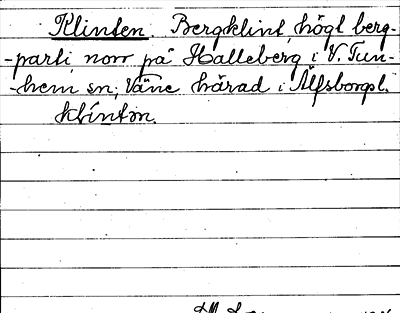 Klinten. Bergklint, högt berg-
-parti norr på Halleberg i V. Tun-
-hem sn, Väne härad i Älfsborgsl.
klinton.